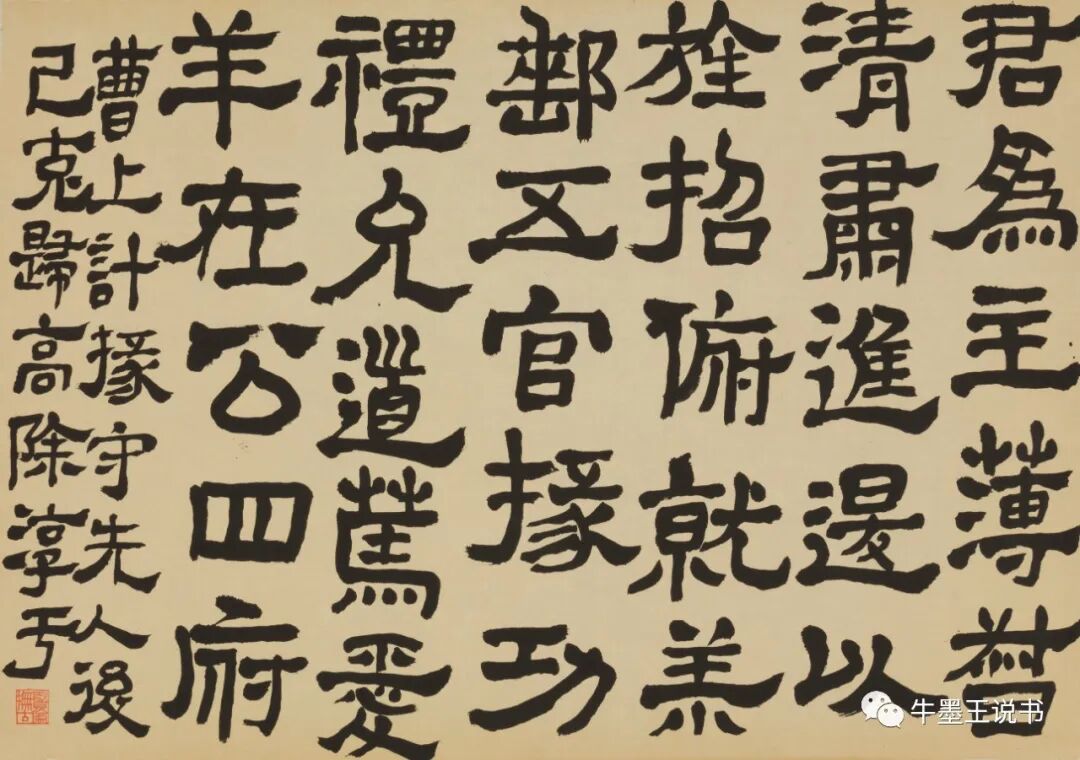 君為主薄督
清肅進退以
旌招俯就羔
郵五官掾功
禮允道篤愛
羊在公四府
曹上計掾守先人後
己克歸高除淳于
牛墨王说书